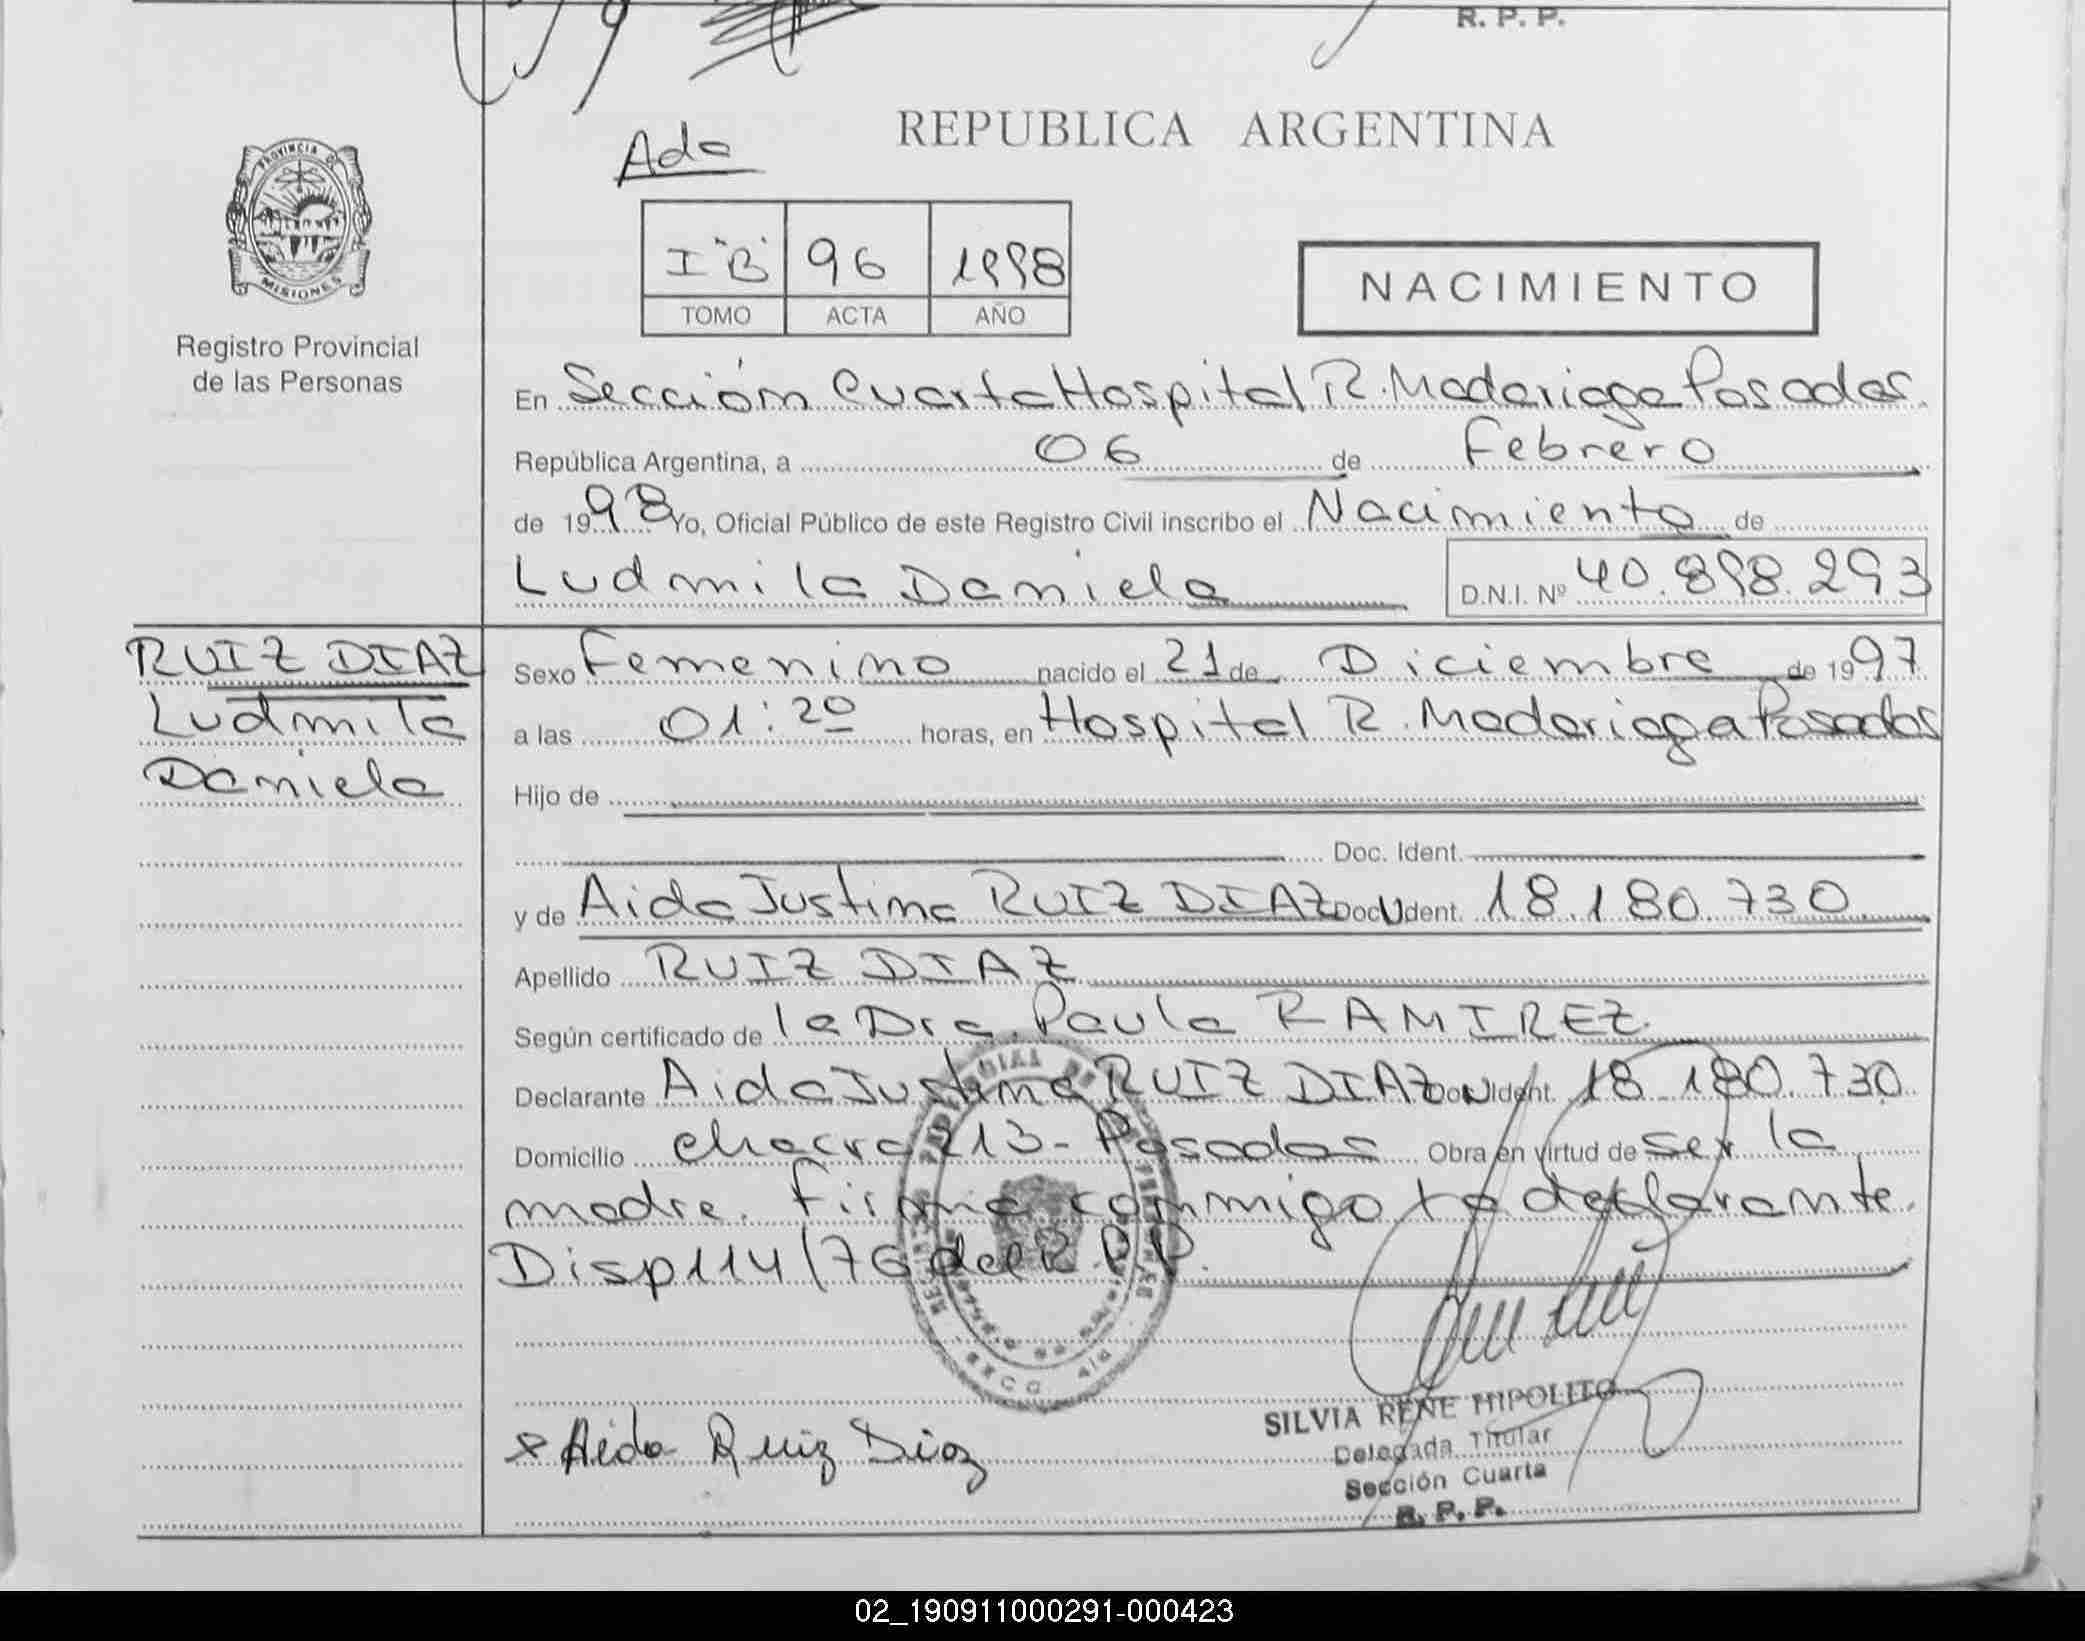 R. P. P.
REPUBLICA ARGENTINA
Ada
PROVINCIA DE
MISIONES
Registro Provincial
de las Personas
I "B" 96 1998
TOMO ACTA AÑO
NACIMIENTO
En Sección Cuarta Hospital R. Madariaga Posadas.
República Argentina, a 06 de Febrero
de 1998 Yo, Oficial Público de este Registro Civil inscribo el Nacimiento de
Ludmila Daniela D.N.I. Nº 40.898.293
RUIZ DIAZ
Ludmila
Daniela
Sexo Femenino nacido el 21 de Diciembre de 1997
a las 01:20 horas, en Hospital R. Madariaga Posadas
Hijo de
Doc. Ident.
y de Aida Justina RUIZ DIAZ Doc. Ident. 18.180.730
Apellido RUIZ DIAZ
Según certificado de la Dra. Paula RAMIREZ.
Declarante Aida Justina RUIZ DIAZ Doc. Ident. 18.180.730
Domicilio chacra 213 - Posadas Obra en virtud de ser la
madre. Firma conmigo la declarante.
Disp 114/76 del R.P.P.
x Aida Ruiz Diaz
SILVIA RENE HIPOLITO
Delegada Titular
Sección Cuarta
R. P. P.
02_190911000291-000423